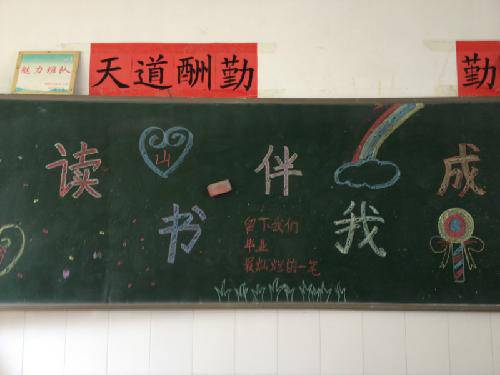 魅力班队
天道酬勤
勤
读书伴我成
山
留下我们
毕业
最灿烂的一笔